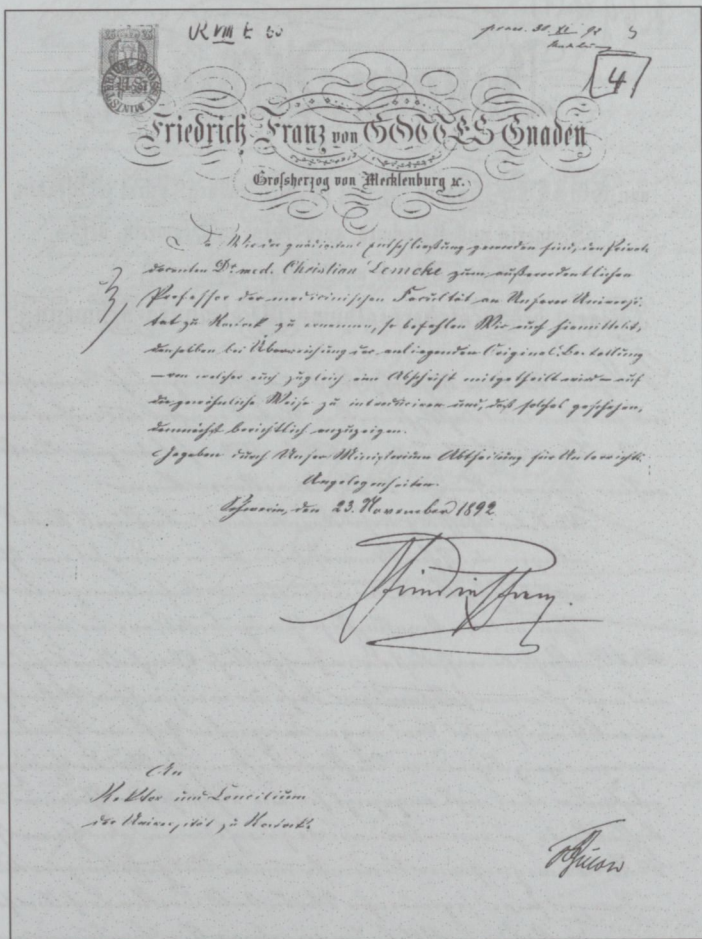 R VIII E
praes. 30. XI. 92
4
Friedrich Franz von GOTTES Gnaden
Grossherzog von Mecklenburg &c.
Da Wir der gnädigsten Entschließung geworden sind, den Privat-
docenten Dr. med. Christian Lemcke zum außerordentlichen
Professor der medicinischen Facultät an Unserer Universi-
tät zu Rostock zu ernennen, so befehlen Wir euch hiemittelst,
denselben bei Überreichung der anliegenden Original-Bestallung
– von welcher euch zugleich eine Abschrift mitgetheilt wird – auf
die gewöhnliche Weise zu introduciren und, daß solches geschehen,
demnächst berichtlich anzuzeigen.
Gegeben durch Unser Ministerium Abtheilung für Unterrichts-
Angelegenheiten.
Schwerin, den 23. November 1892
Friedrich Franz.
An
Rektor und Concilium
der Universität zu Rostock.
vBülow